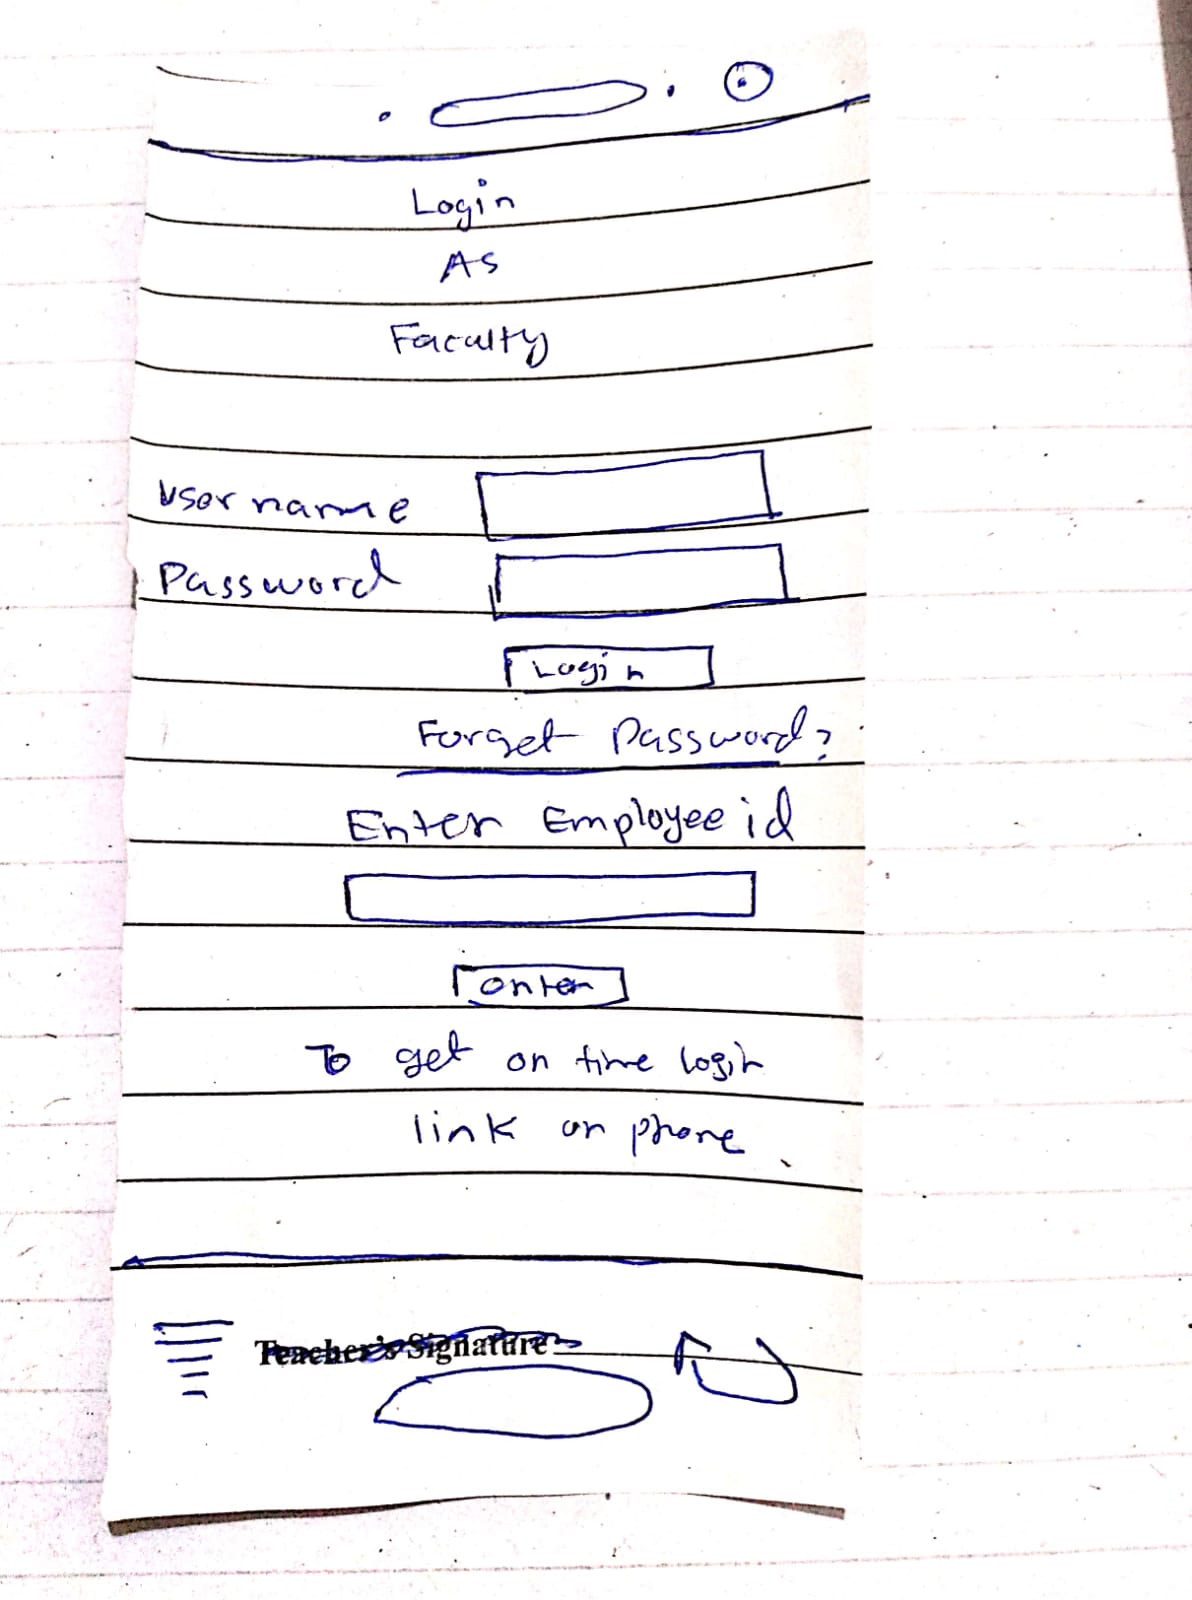 Login
As
Faculty
Username
Password
Login
Forget Password?
Enter Employee id
enter
To get on time login
link on phone.
Teacher's Signature